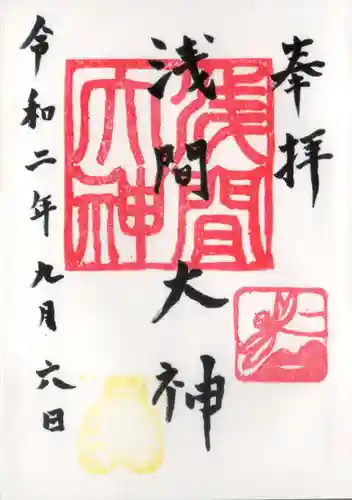 奉拝
浅間大神
浅間大神
令和二年九月六日